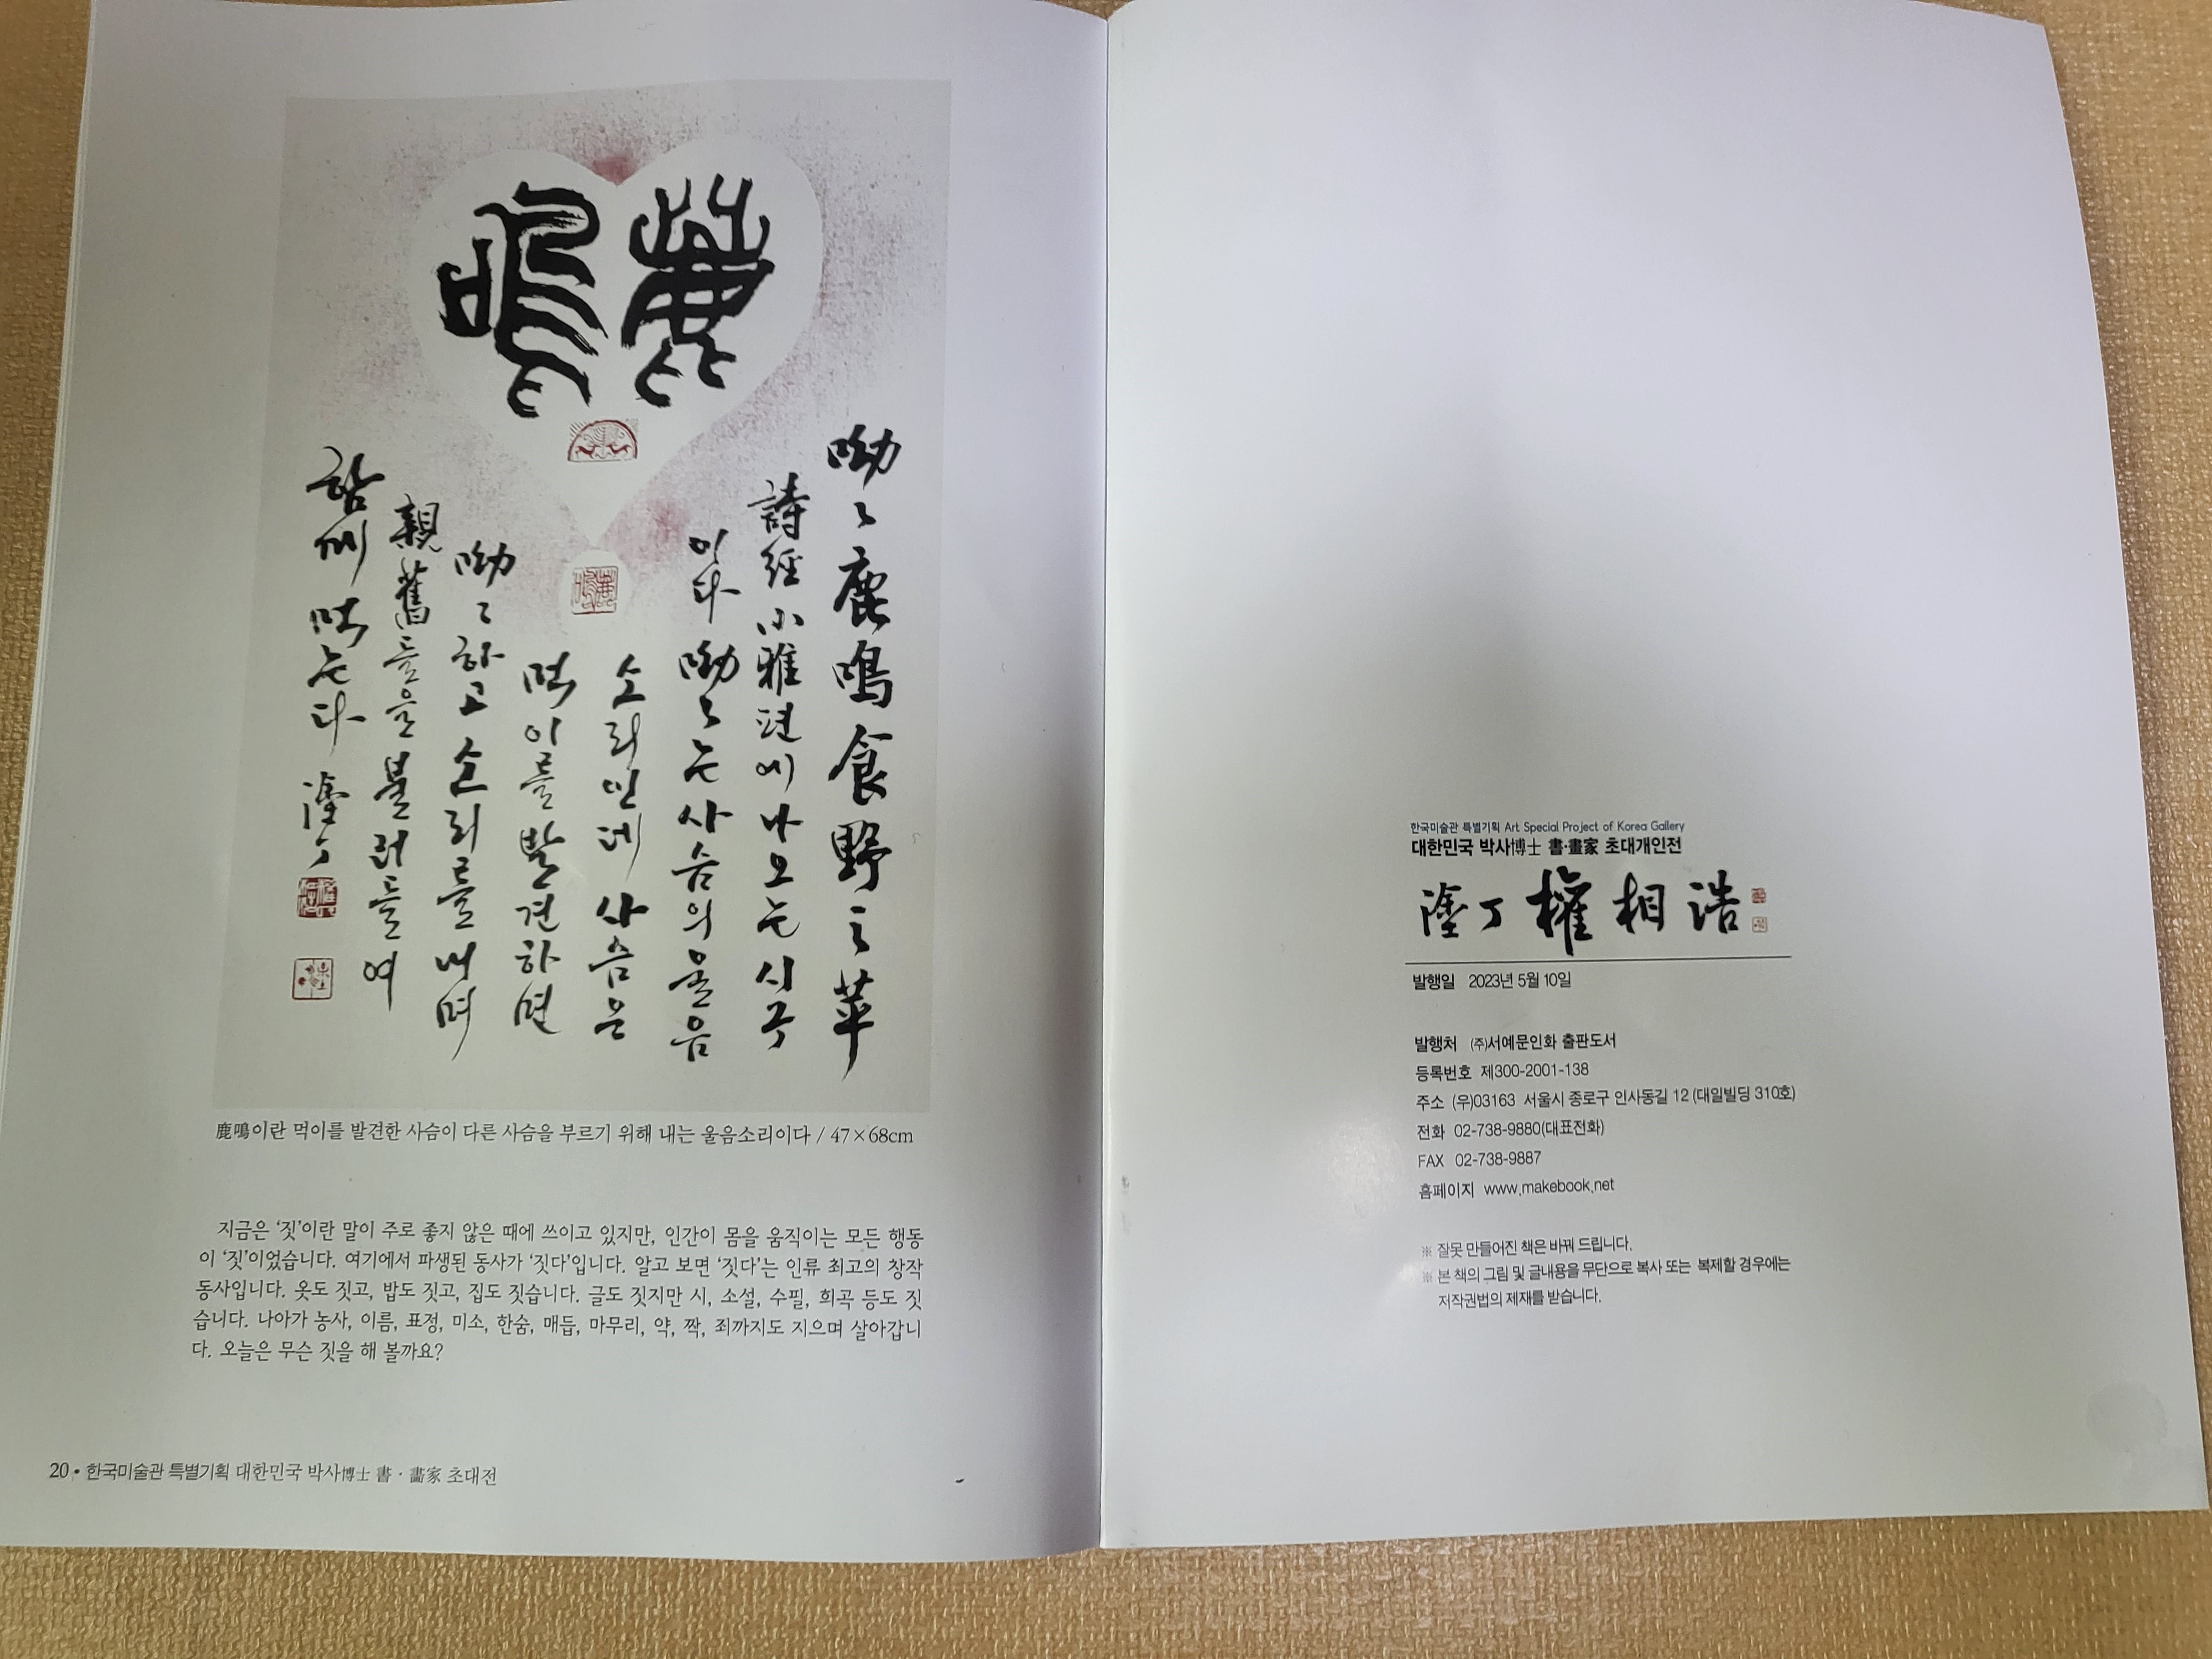 鹿鳴
呦〻鹿鳴食野之苹
詩經小雅편에 나오는 시구
이다 呦〻는 사슴의 울음
소리인데 사슴은
먹이를 발견하면
呦〻하고 소리를 내며
親舊들을 불러들여
함께 먹는다 塗丁
鹿鳴이란 먹이를 발견한 사슴이 다른 사슴을 부르기 위해 내는 울음소리이다 / 47×68cm
지금은 ‘짓’이란 말이 주로 좋지 않은 때에 쓰이고 있지만, 인간이 몸을 움직이는 모든 행동
이 ‘짓’이었습니다. 여기에서 파생된 동사가 ‘짓다’입니다. 알고 보면 ‘짓다’는 인류 최고의 창작
동사입니다. 옷도 짓고, 밥도 짓고, 집도 짓습니다. 글도 짓지만 시, 소설, 수필, 희곡 등도 짓
습니다. 나아가 농사, 이름, 표정, 미소, 한숨, 매듭, 마무리, 약, 짝, 죄까지도 지으며 살아갑니
다. 오늘은 무슨 짓을 해 볼까요?
20 • 한국미술관 특별기획 대한민국 박사博士 書 · 畵家 초대전
한국미술관 특별기획 Art Special Project of Korea Gallery
대한민국 박사博士 書·畫家 초대개인전
塗丁 權相浩
발행일 2023년 5월 10일
발행처 (주)서예문인화 출판도서
등록번호 제300-2001-138
주소 (우)03163 서울시 종로구 인사동길 12 (대일빌딩 310호)
전화 02-738-9880(대표전화)
FAX 02-738-9887
홈페이지 www.makebook.net
※ 잘못 만들어진 책은 바꿔 드립니다.
※ 본 책의 그림 및 글내용을 무단으로 복사 또는 복제할 경우에는
저작권법의 제재를 받습니다.